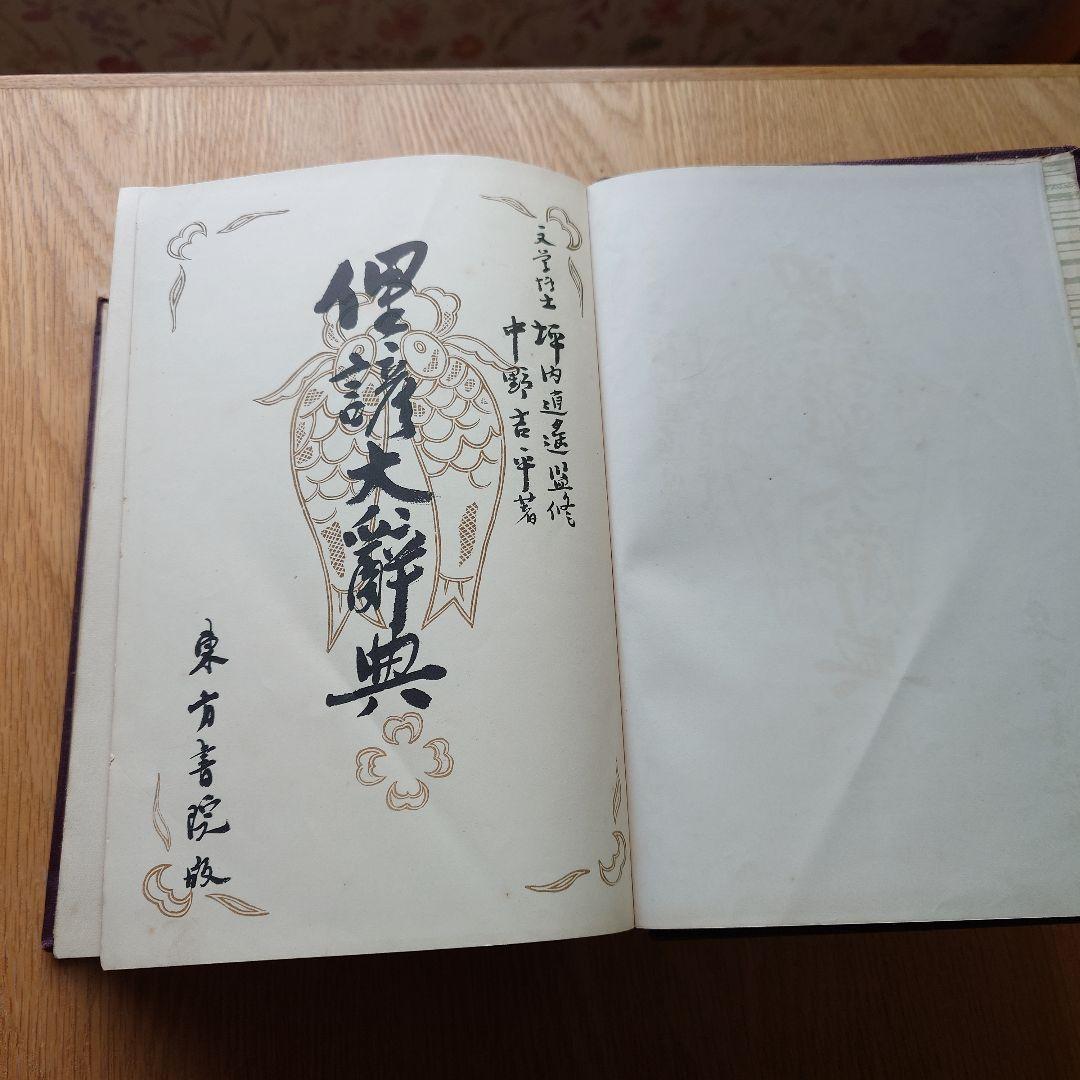 文学博士 坪内逍遙監修
中野吉平著
俚諺大辭典
東方書院版